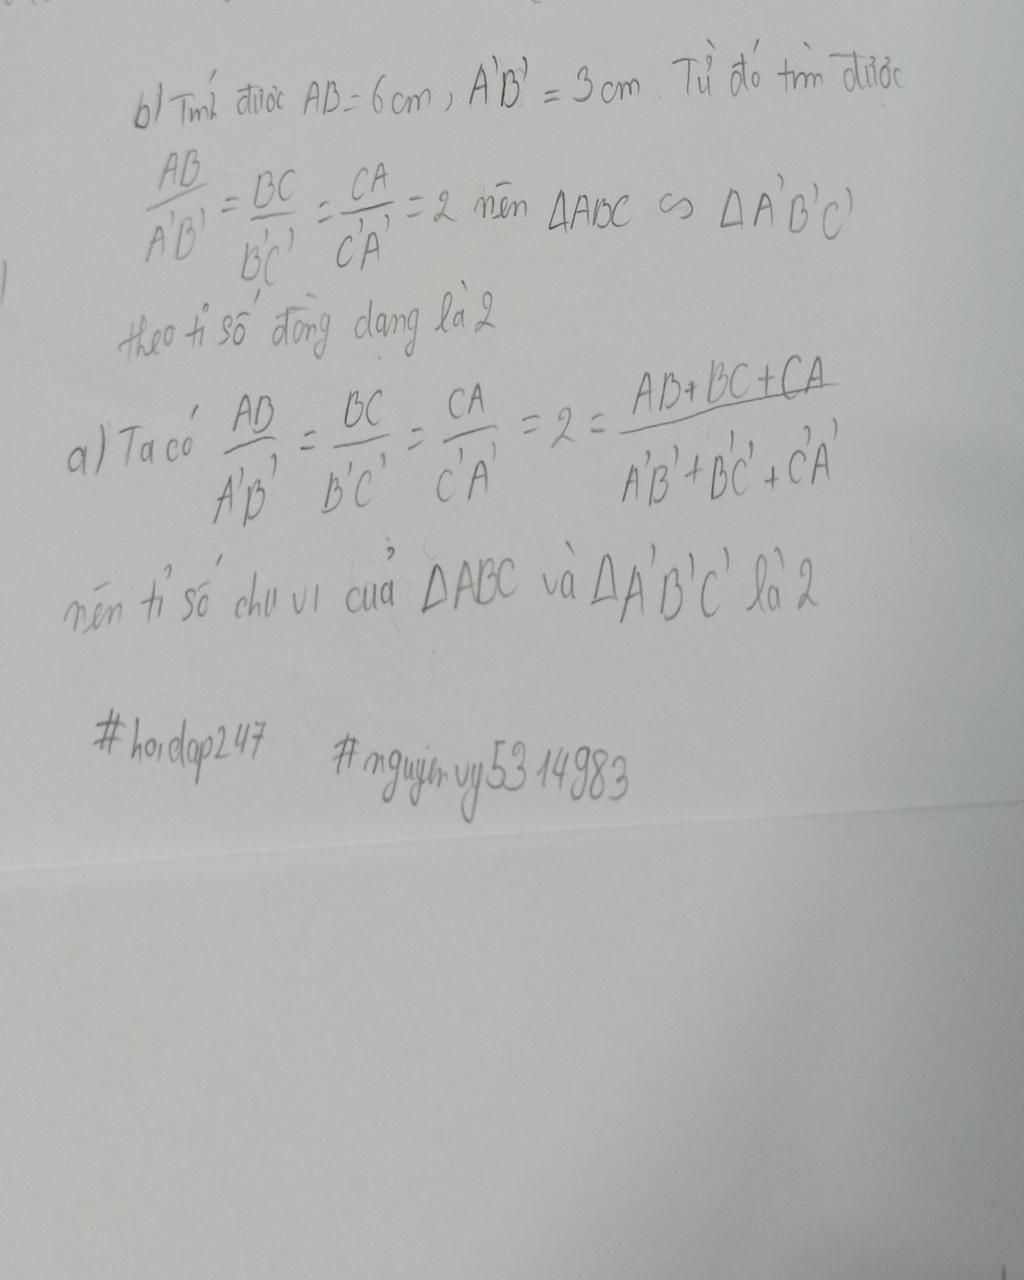 b) Tính được AB = 6cm, A'B' = 3cm. Từ đó tìm được
AB/A'B' = BC/B'C' = CA/C'A' = 2 nên ΔABC ∽ ΔA'B'C'
theo tỉ số đồng dạng là 2
a) Ta có AB/A'B' = BC/B'C' = CA/C'A' = 2 = AB+BC+CA/A'B'+B'C'+C'A'
nên tỉ số chu vi của ΔABC và ΔA'B'C' là 2
#hoidap247 #nguyenvy5314983